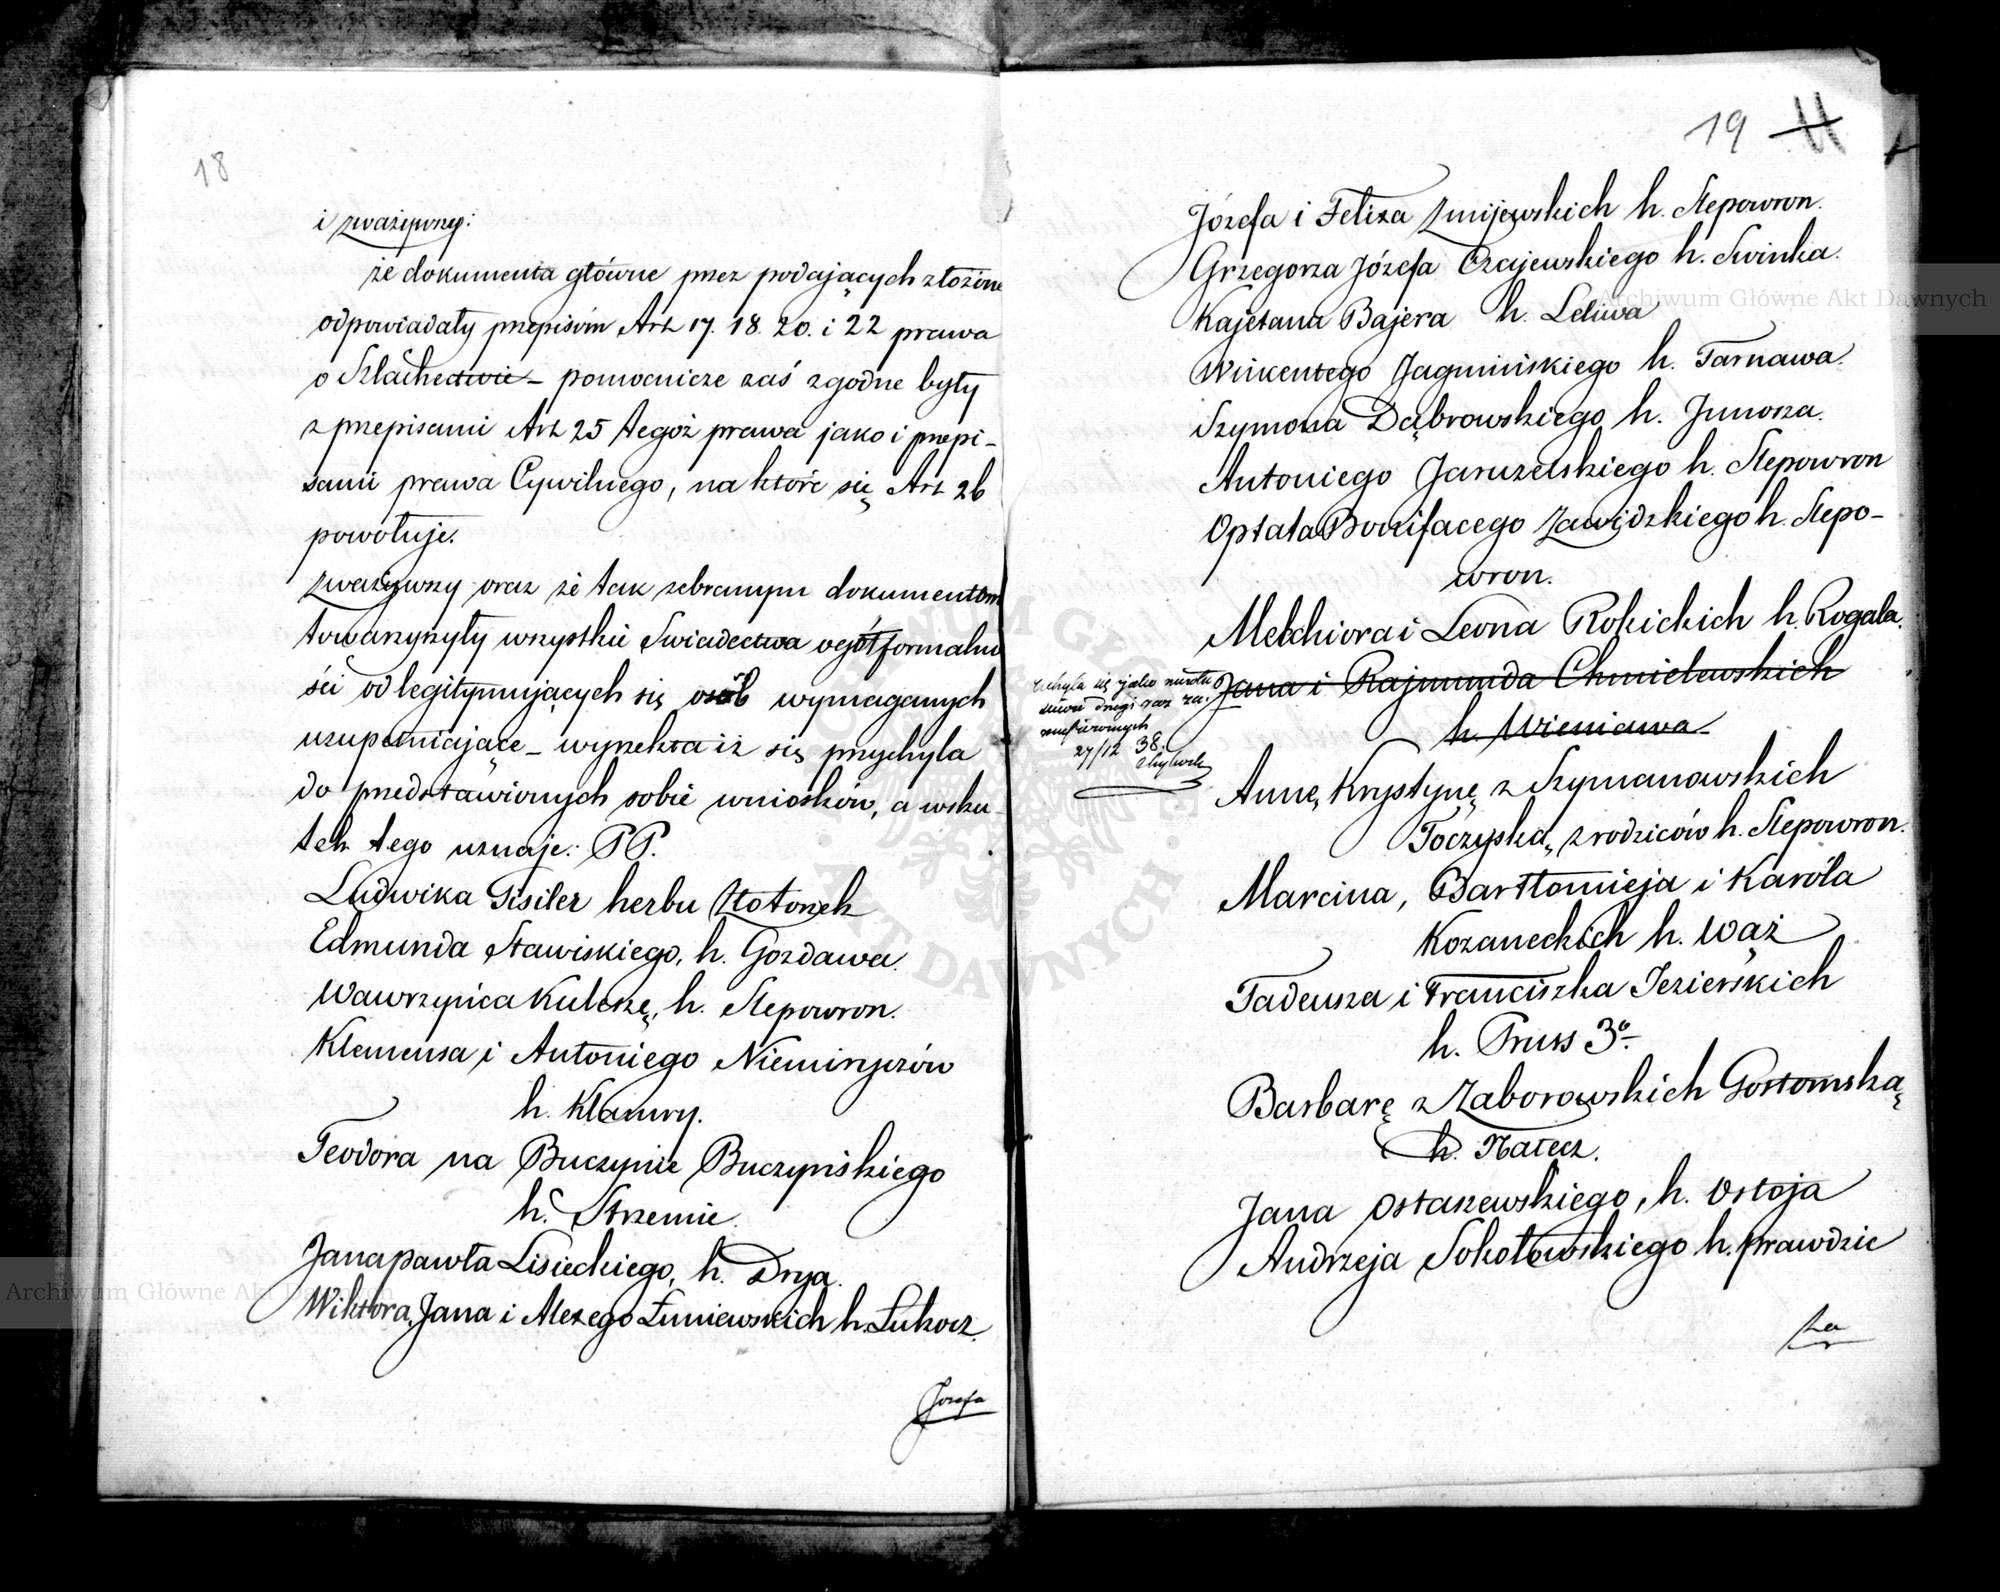 18
i zważywszy:
że dokumenta główne przez podających złożone
odpowiadały przepisom Art 17. 18. 20. i 22 prawa
o Szlachectwie – pomocnicze zaś zgodne były
z przepisami Art 25 tegoż prawa jako i przepi-
sami prawa Cywilnego, na które się Art 26
powołuje.
Zważywszy oraz że tak zebranym dokumentom
towarzyszyły wszystkie Świadectwa ogół formalno
ści od legitymujących się osób wymaganych
uzupełniające – wyrzekła iż się przychyla
do przedstawionych sobie wniosków, a wsku
tek tego uznaje: PP.
Ludwika Fisiler herbu Złotonek
Edmunda Stawiskiego, h. Gozdawa.
Wawrzyńca Kuleszę, h. Slepowron.
Klemensa i Antoniego Niemiryczów
h. Klamry.
Teodora na Buczynie Buczyńskiego
h. Strzemie.
Jana Pawła Lisieckiego, h. Drya.
Wiktora, Jana i Alexego Łuniewskich h. Łukocz.
Jozefa
19 11
Józefa i Felixa Zmijewskich h. Slepowron.
Grzegorza Józefa Czajewskiego h. Swinka.
Kajetana Bajera h. Leliwa
Wincentego Jagmińskiego h. Tarnawa.
Szymona Dąbrowskiego h. Junosza.
Antoniego Jaruzelskiego h. Slepowron
Optata Bonifacego Zawidzkiego h. Slepo-
wron.
Melchiora i Leona Rokickich h. Rogala.
Jana i Rajmunda Chmielewskich
h. Wieniawa
uchyla się jako
drugi raz za-
27/12 38.
Annę Krystynę z Szymanowskich
Toczyską, z rodziców h. Slepowron.
Marcina, Bartłomieja i Karola
Kozaneckich h. Wąż
Tadeusza i Franciszka Jezierskich
h. Pruss 3o
Barbarę z Zaborowskich Gostomską
h. Nałecz.
Jana Ostaszewskiego, h. Ostoja
Andrzeja Sokołowskiego h. Prawdzic
Za
Archiwum Główne Akt Dawnych
Archiwum Główne Akt Dawnych
ARCHIWUM GŁÓWNE AKT DAWNYCH